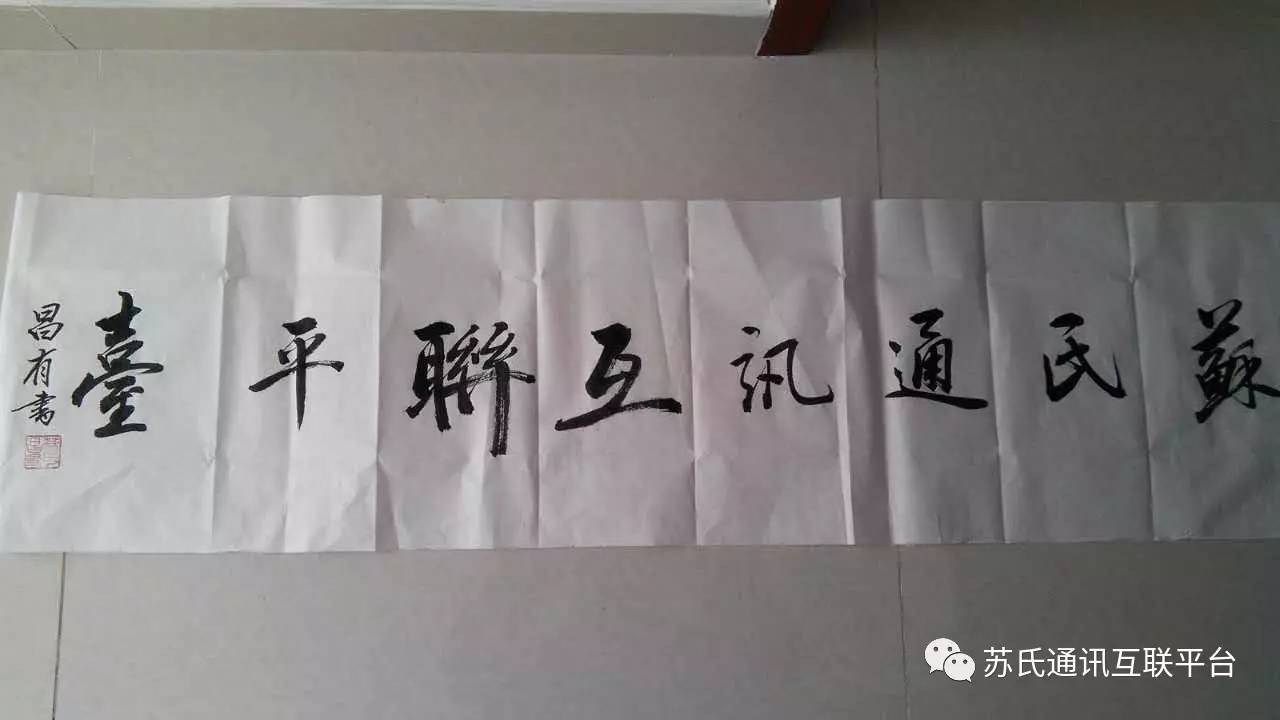 蘇氏通訊互聯平臺
昌有書
苏氏通讯互联平台